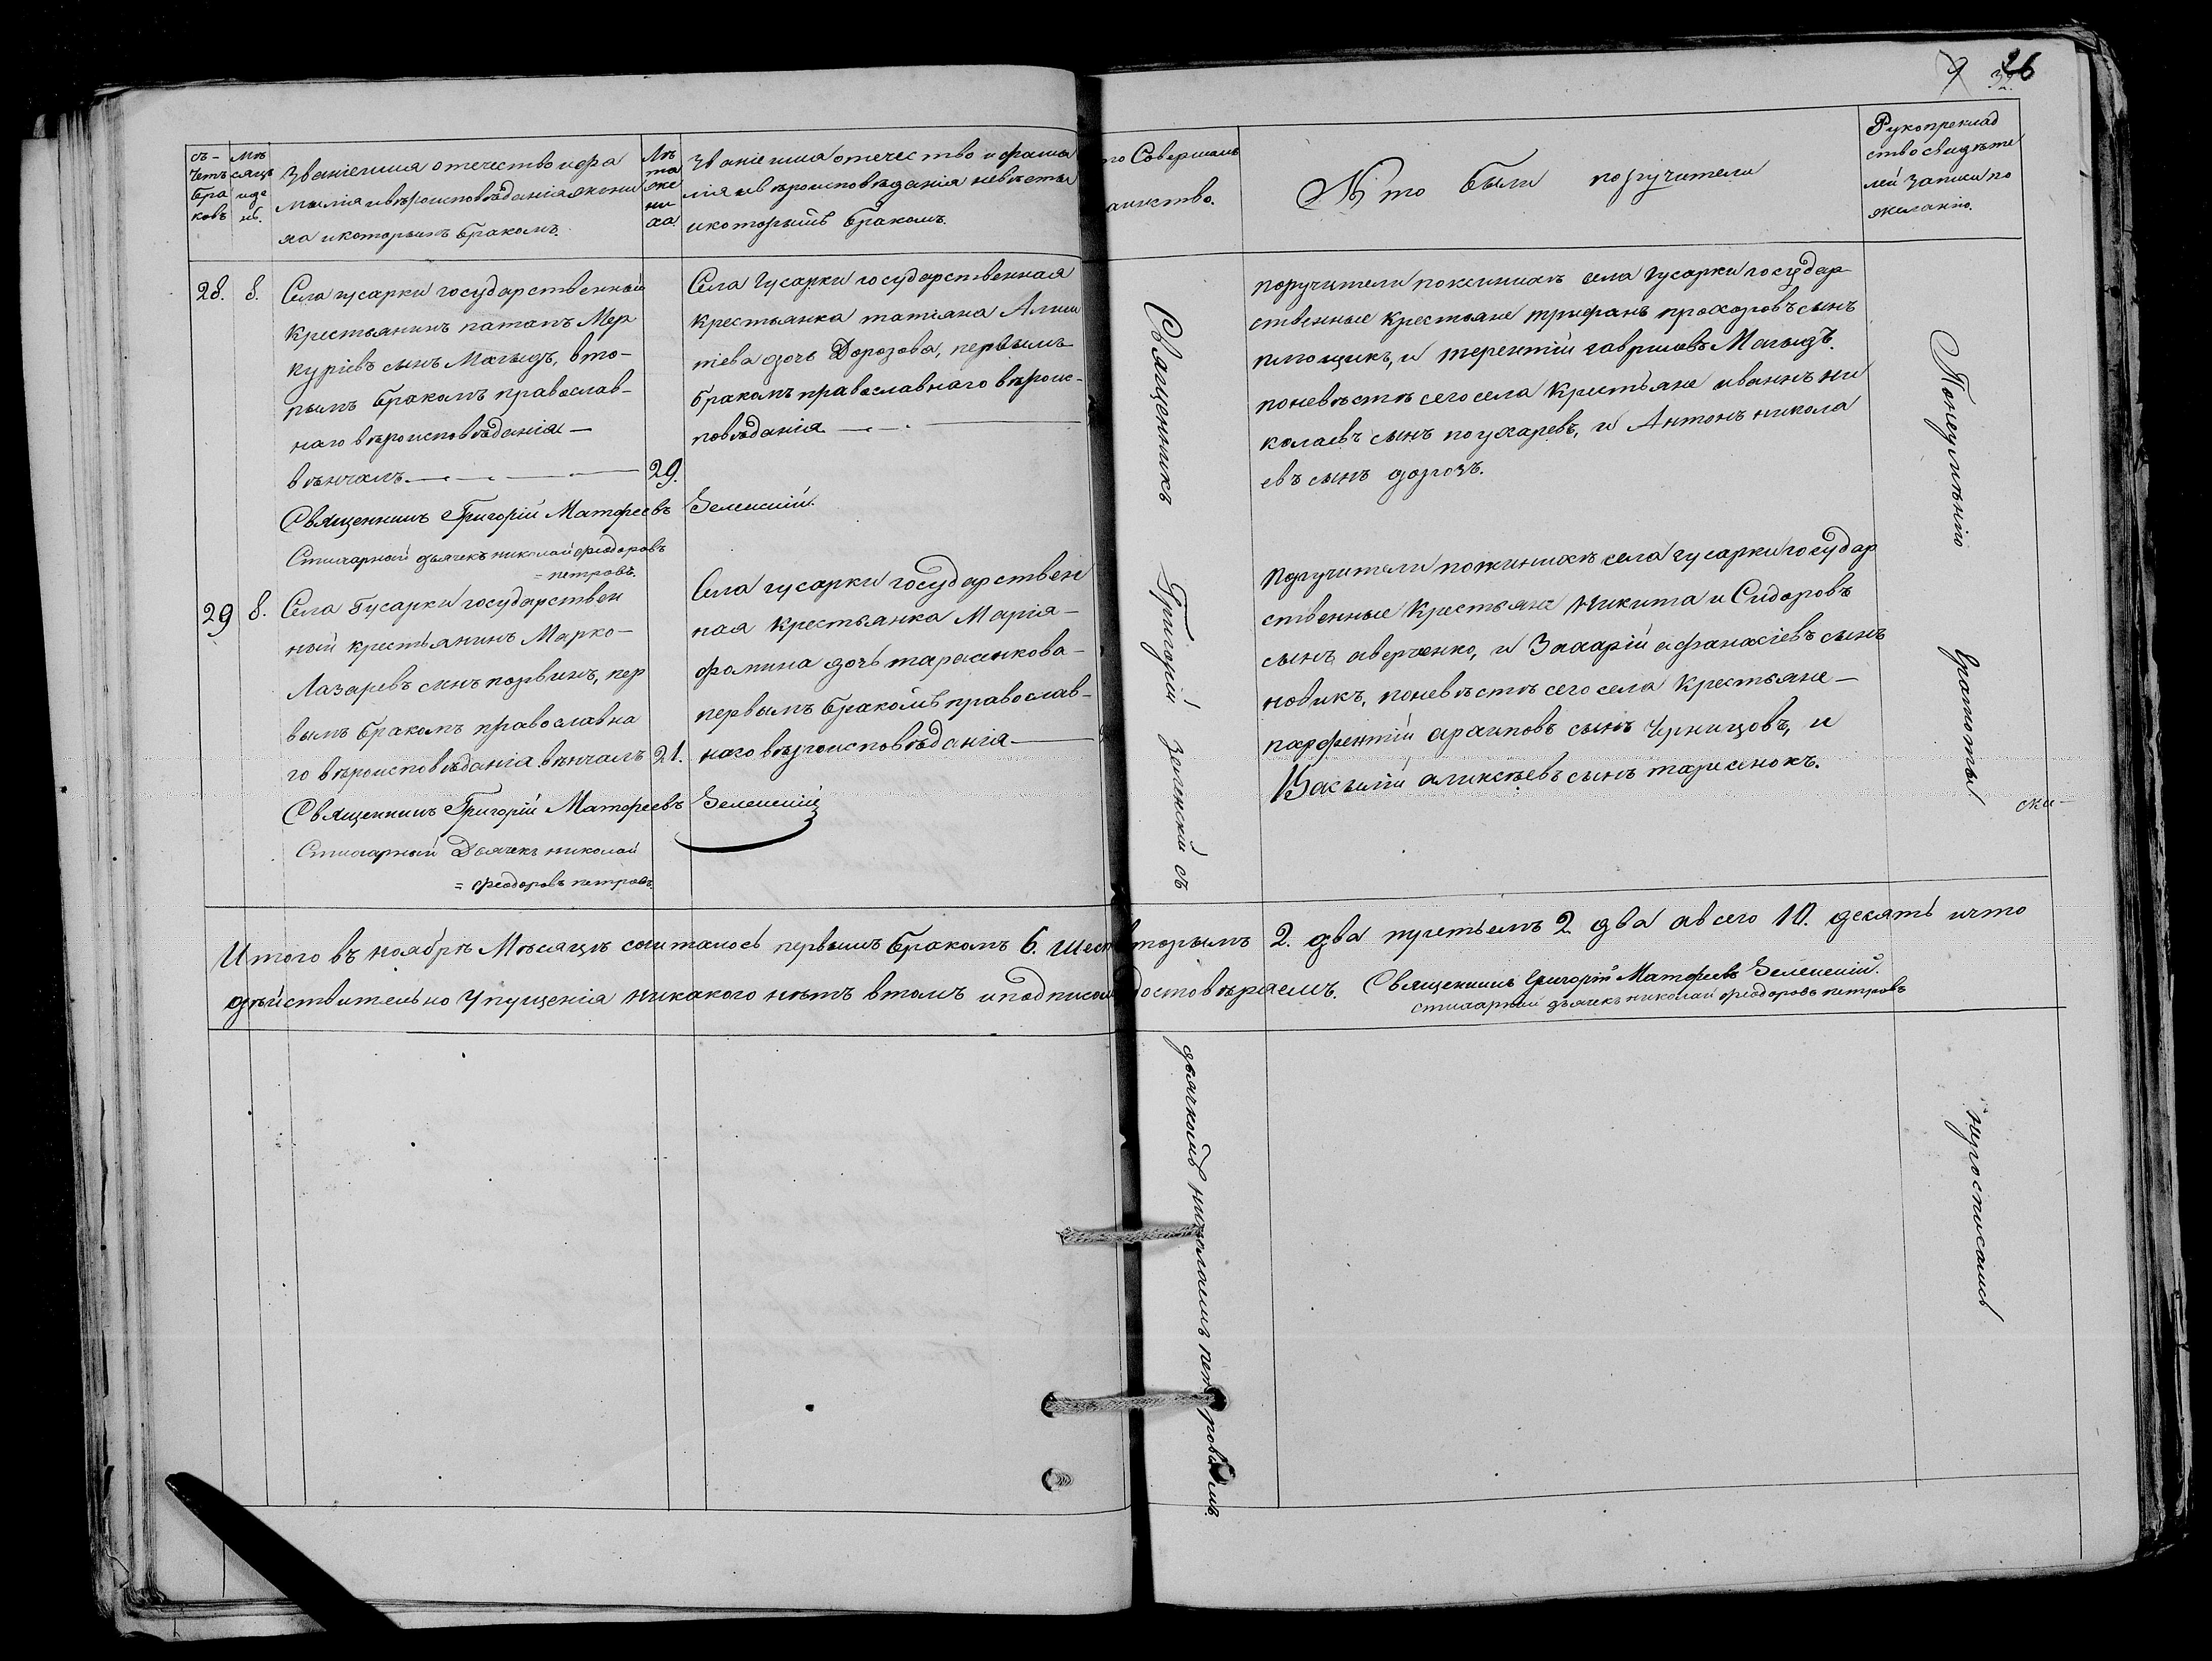 26
съ-
четъ
бра
ковъ
мѣ
сяцъ
иде
нь.
Званіеимя отечество ифа
милія ивѣроисповѣданія жени
ха икоторымъ бракомъ.
Лѣ
та
же
ни
ха.
Званіеимя отечество и фами
лія ивѣроисповѣданія невѣсты
икоторымъ бракомъ.
то Совершалъ
аинство.
Кто были поручители
Рукоприклад
ство свидѣте
лей записи по
желанію.
28. 8.
Села гусарки государственный
Крестьянинъ патапъ Мер
куріевъ сынъ Магыдъ, вто-
рымъ бракомъ православ-
наго вѣроисповѣданія —
вѣнчалъ
29.
Священникъ Григорій Матфеевъ Зеленскій.
Стихарный дьячекъ николай феодоровъ
= петровъ.
Села Гусарки государственная
крестьянка татіана
тіева дочь Дорозова, первымъ
бракомъ православнаго вѣроис-
повѣданія
поручители поженихѣ села гусарки государ
ственные крестьяне трифанъ прохоровъ сынъ
плющикъ, и терентій гавриловъ Магыдъ.
поневѣстѣ сего села Крестьяне иваннъ ни
колаевъ сынъ поухаревъ, и Антонъ никола
евъ сынъ дорозъ.
29 8.
Села Гусарки государствен
ный крестьянинъ Марко-
Лазаревъ сынъ, пер
вымъ бракомъ православна
го вѣроисповѣданія. вѣнчалъ
21.
Священникъ Григорій Матфеевъ Зеленскій
Стихарный Дьячекъ николай
= феодоровъ петровъ.
Села гусарки государствен
ная крестьянка Марія-
фомина дочь тарасенкова-
первымъ бракомъ православ-
наго вѣроисповѣданія
Поручители поженихѣ села гусарки государ
ственные Крестьяне Никита и Сидоровъ
сынъ аверченко, и Захарій афанасіевъ сынъ
новикъ, поневѣстѣ сего села Крестьяне-
парфентій архиповъ сынъ Черницовъ, и
Василій аликсѣевъ сынъ тарасенокъ.
Священникъ Григорій зеленскій съ
дьячкомъ николаемъ петровымъ.
Понеумѣнію грамоты
неросписались
Итого въ ноябрѣ Мѣсяцѣ считалось первымъ бракомъ 6. шесть вторымъ 2. два третьемъ 2 два авсего 10. десять ичто
дѣйствительно упущенія никакого нѣтъ втомъ иподписомъ достовѣряемъ. Священникъ Григорій Матфеевъ Зеленскій.
стихарный дьячекъ николай феодоровъ петровъ